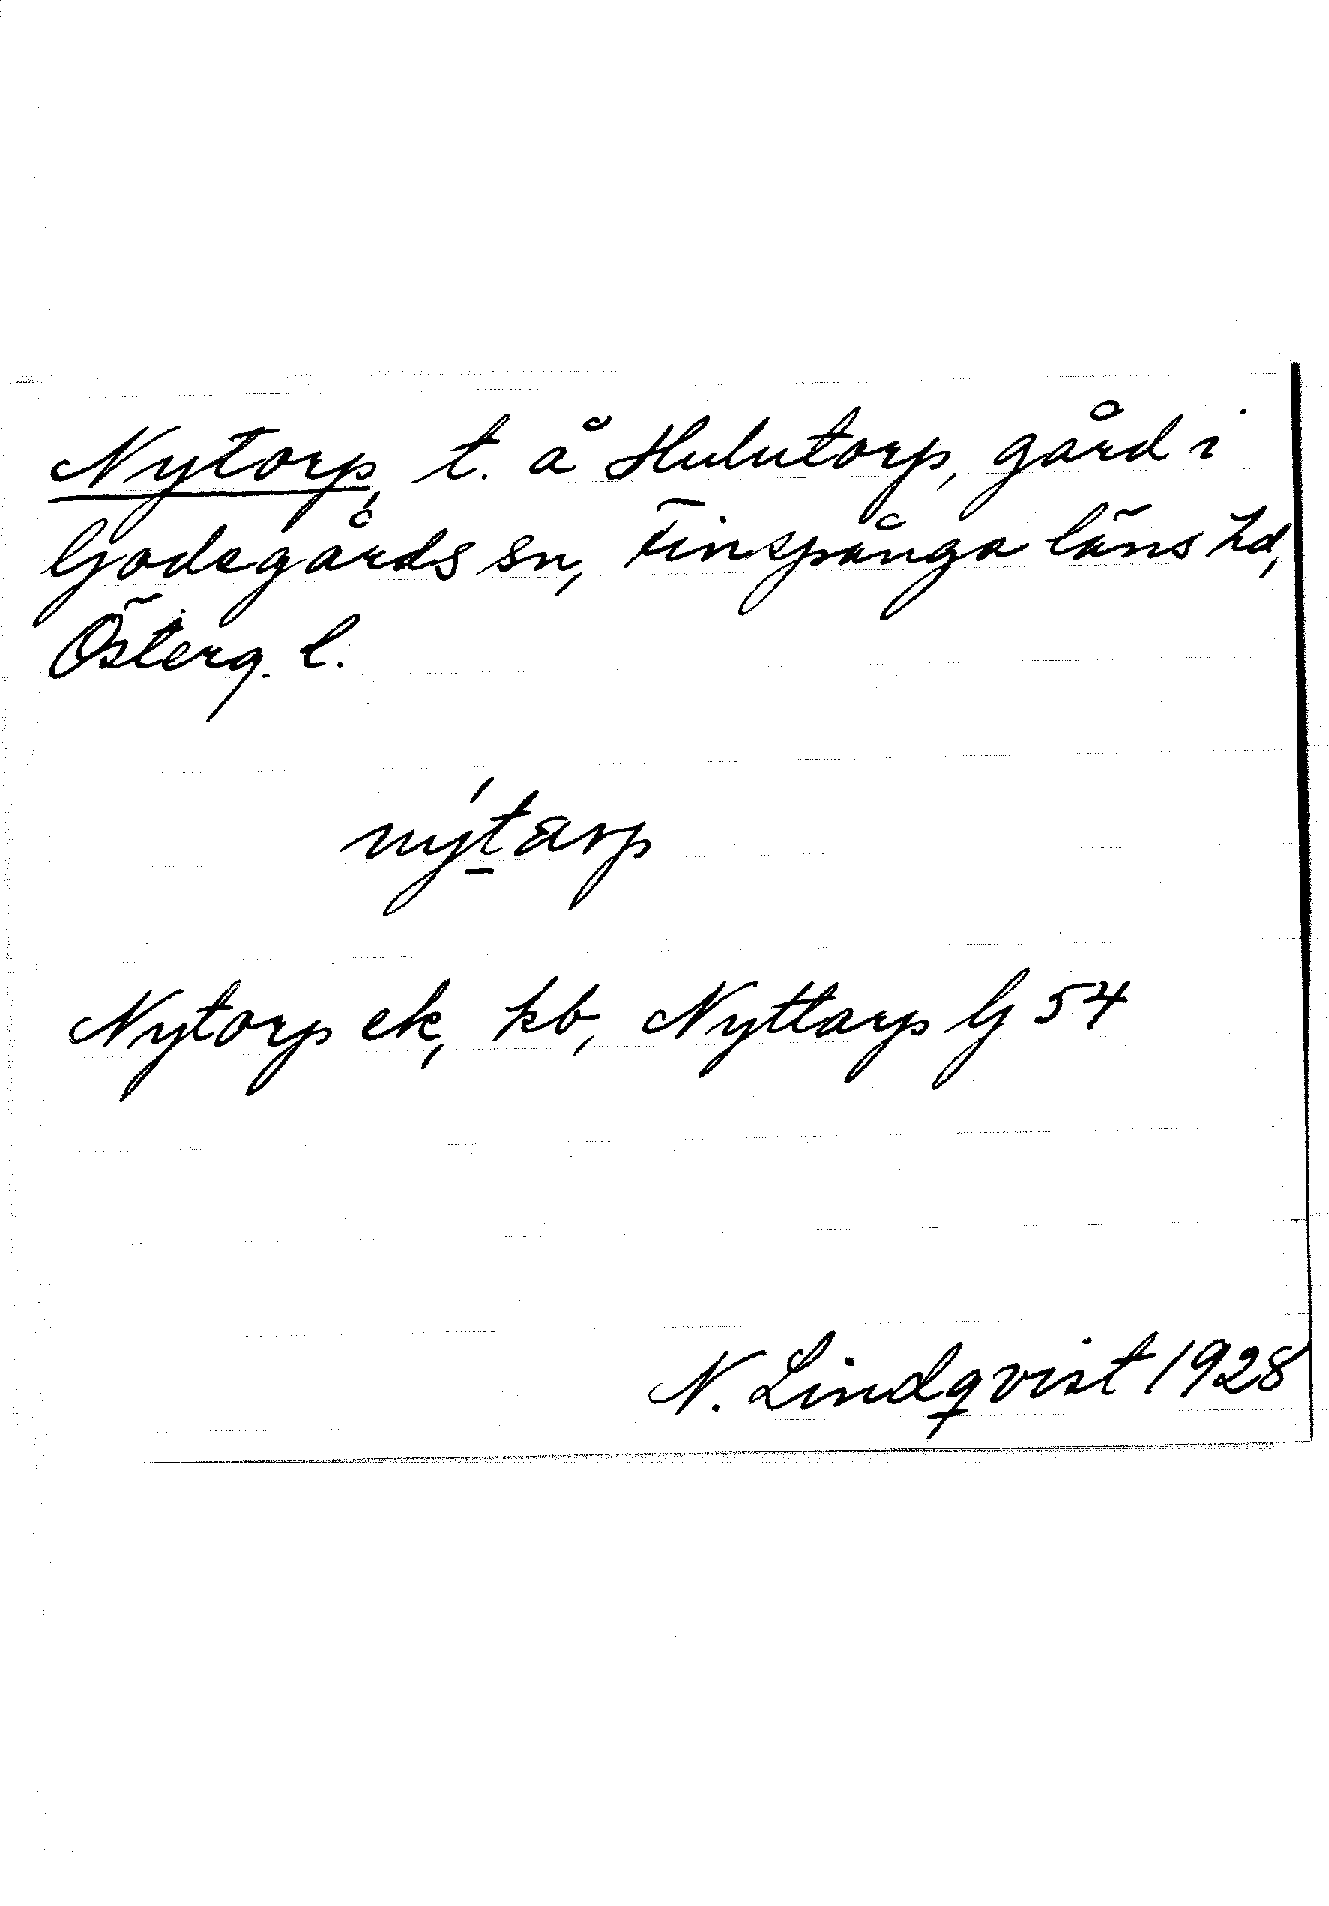 Nytorp, t. å Hulutorp, gård i
Godegårds sn, Finspånga läns hd,
Österg. l.
nýtarp
Nytorp ek, kb, Nyttarp G 54
N. Lindqvist 1928